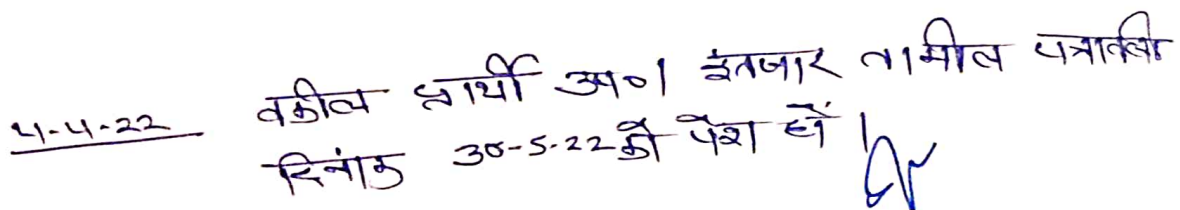 4-4-22 वकील प्रार्थी उप०। इंतजार तामील पत्रावली
दिनांक 30-5-22 को पेश हों।